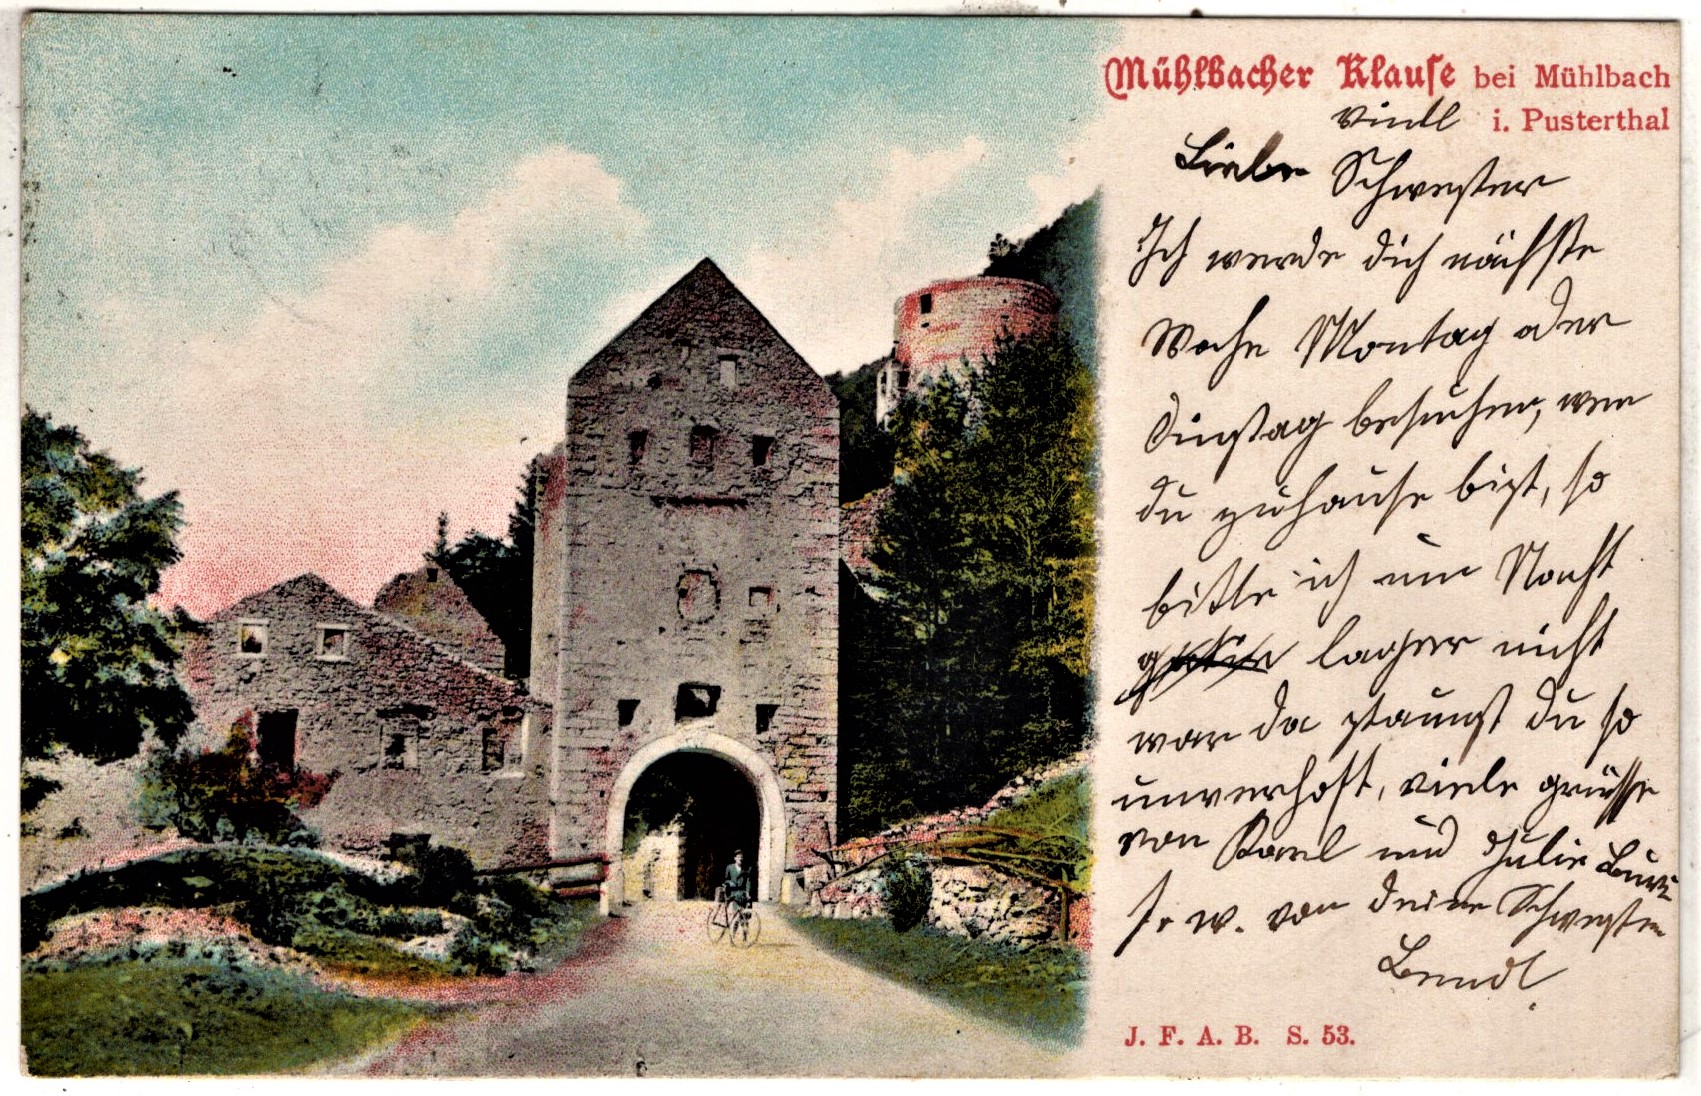 Mühlbacher Klause bei Mühlbach
i. Pusterthal
Liebe Schwester
Ich werde dich nächste
Woche Montag oder
Dinstag besuchen, wen
du zuhause bist, so
bitte ich um Nacht
lager nicht
war da staunst du so
unverhoft, viele grüsse
von Karl und Julie
s. w. von deine Schwester
J. F. A. B. S. 53.